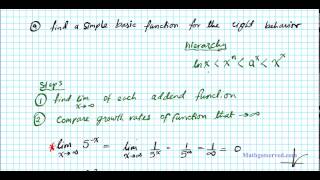 ⓐ find a simple basic function for the right behavior
hierarchy
ln x < xⁿ < aˣ < xˣ
Steps
① find lim x→∞ of each addend function
② Compare growth rates of function that →∞
* lim x→∞ 5⁻ˣ = lim x→∞ 1/5ˣ = 1/5^∞ = 1/∞ = 0
Mathgotserved.com